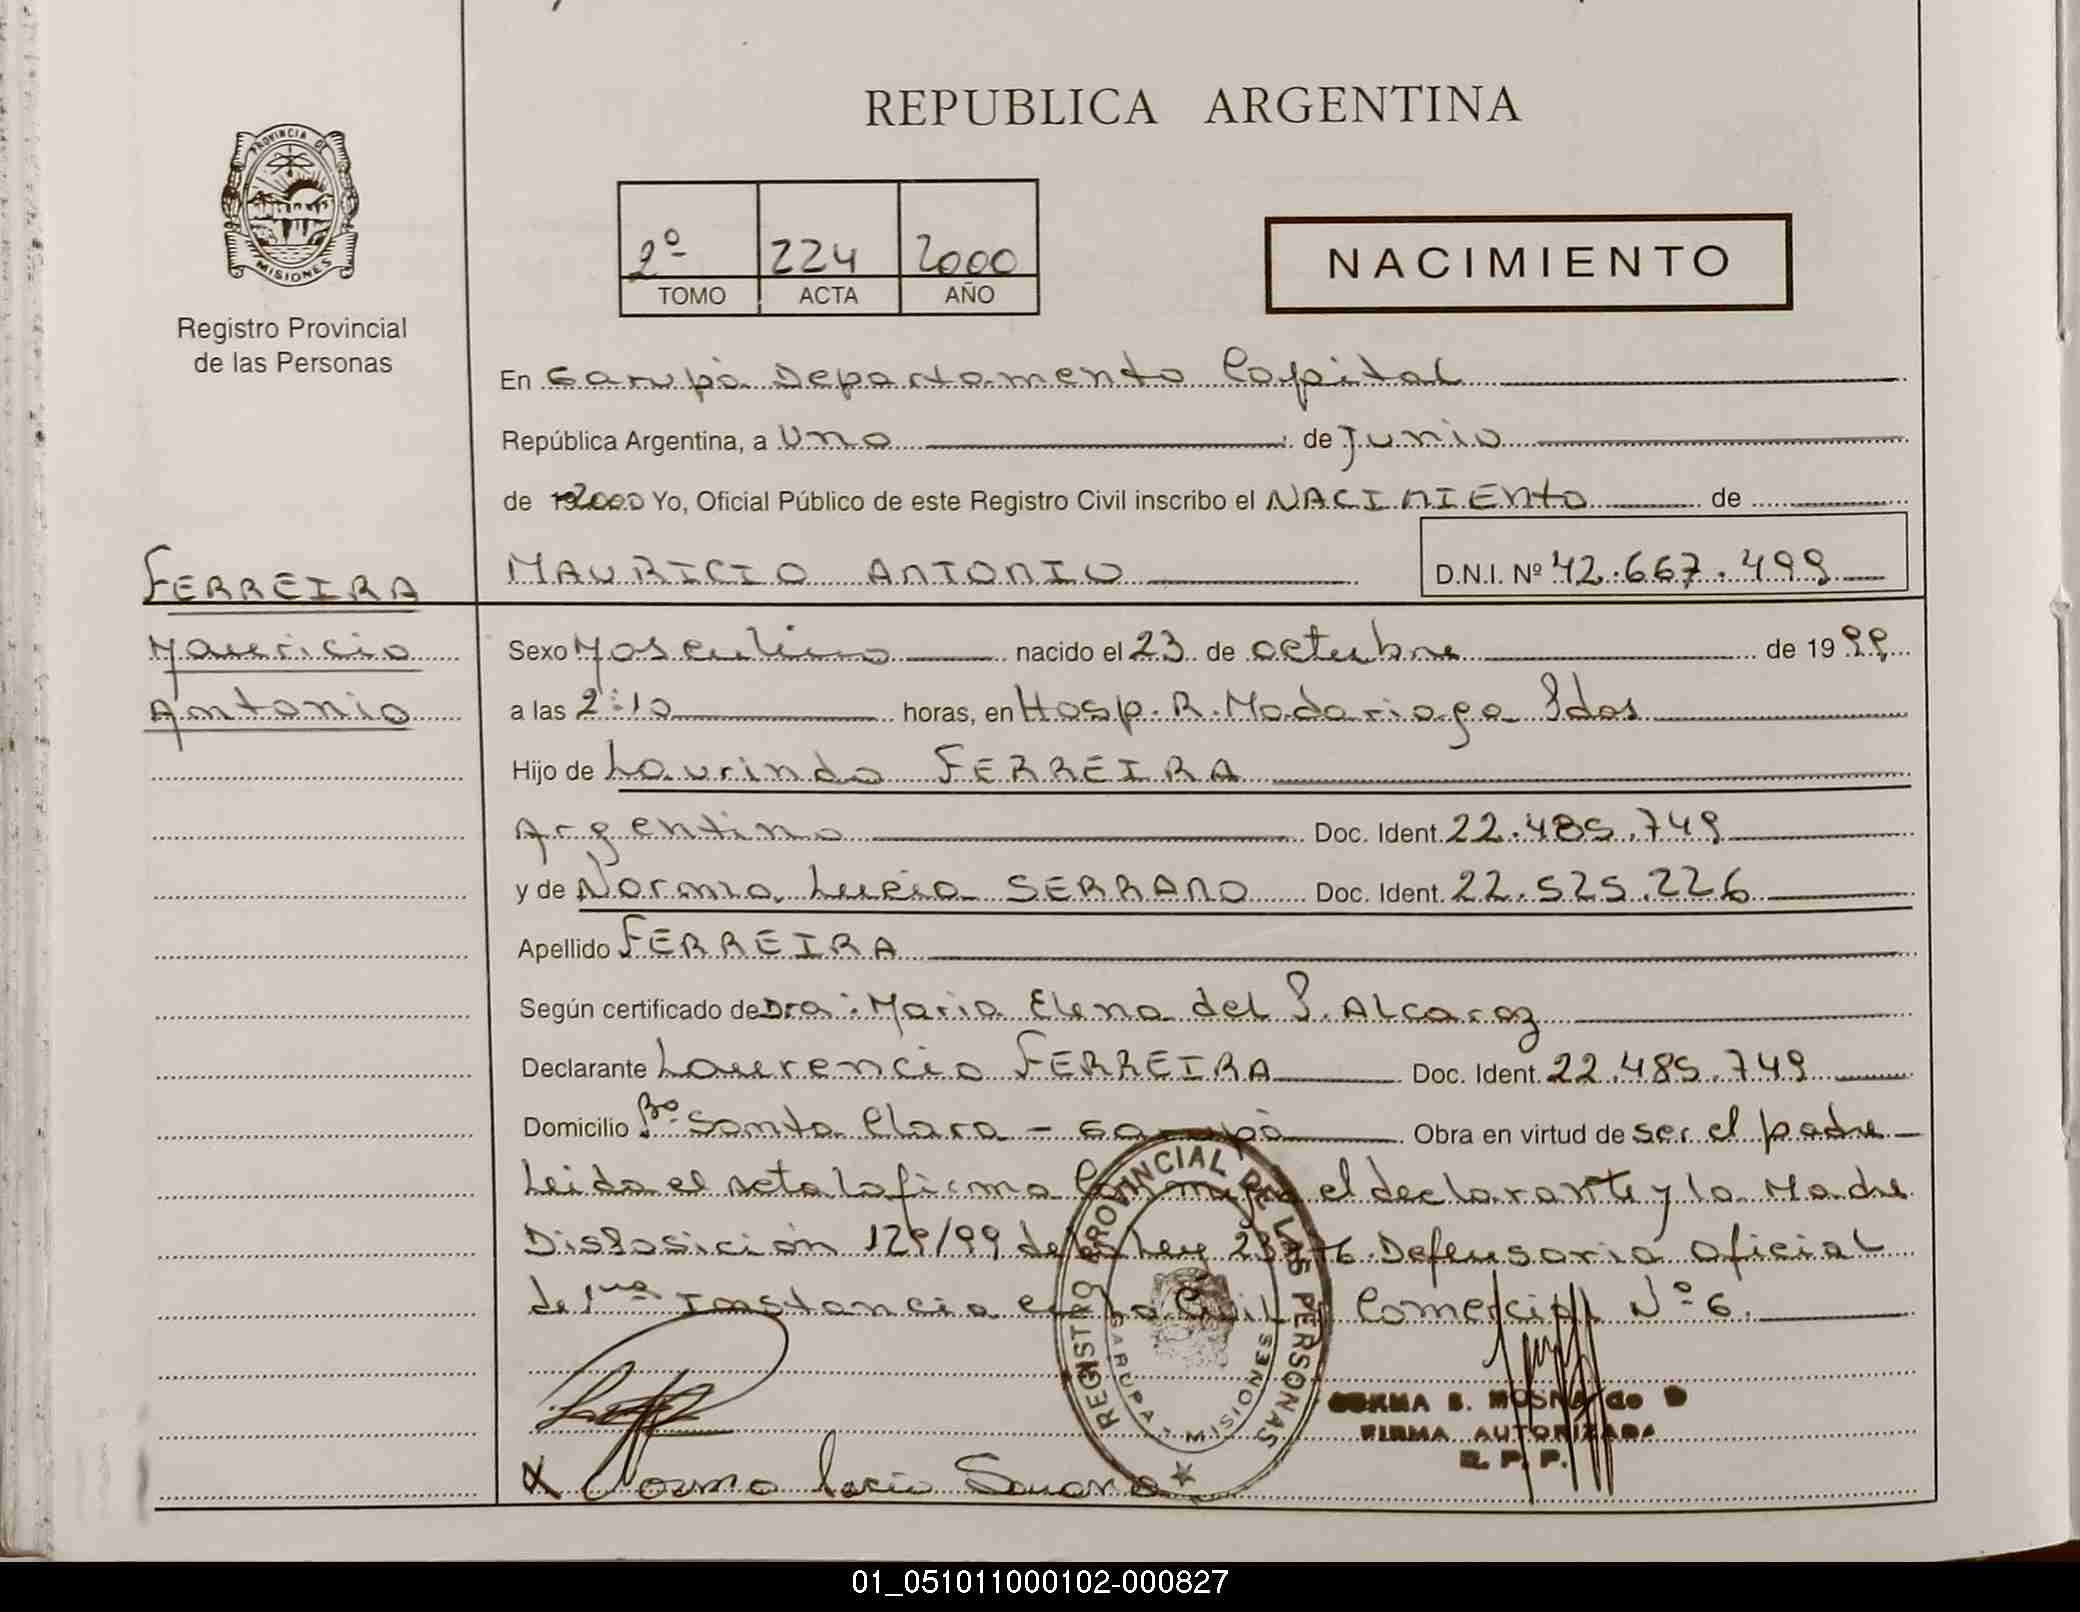 REPUBLICA ARGENTINA
PROVINCIA DE
MISIONES
Registro Provincial
de las Personas
2º 224 2000
TOMO ACTA AÑO
NACIMIENTO
En Garupá Departamento Capital
República Argentina, a Uno de Junio
de 19 2000 Yo, Oficial Público de este Registro Civil inscribo el NACIMIENTO de
FERREIRA
MAURICIO ANTONIO D.N.I. Nº 42.667.499
Mauricio
Sexo Masculino nacido el 23 de octubre de 1999
Antonio
a las 2:10 horas, en Hosp. R. Madariaga Pdas
Hijo de Laurindo FERREIRA
Argentino Doc. Ident. 22.485.749
y de Norma Lucia SERRANO Doc. Ident. 22.525.226
Apellido FERREIRA
Según certificado de Dra: Maria Elena del P. Alcaraz
Declarante Laurencio FERREIRA Doc. Ident. 22.485.749
Domicilio Bº Santa Clara - Garupá Obra en virtud de ser el padre
Leida el acta la firma Conmigo el declarante y la Madre
Disposición 129/99 de la Ley Defensoria oficial
de 1ra Instancia en lo Civil Comercial Nº 6.
REGISTRO PROVINCIAL DE LAS PERSONAS
GARUPA - MISIONES
NORMA B. MOSNA de D
FIRMA AUTORIZADA
R. P. P.
X Norma Lucia Serrano
01_051011000102-000827